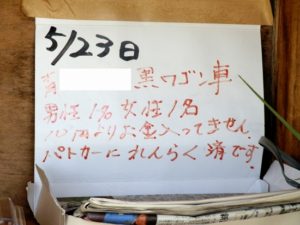 5/23日
黒ワゴン車
男性1名女性1名
10円よりお金入ってません。
パトカーにれんらく済です。